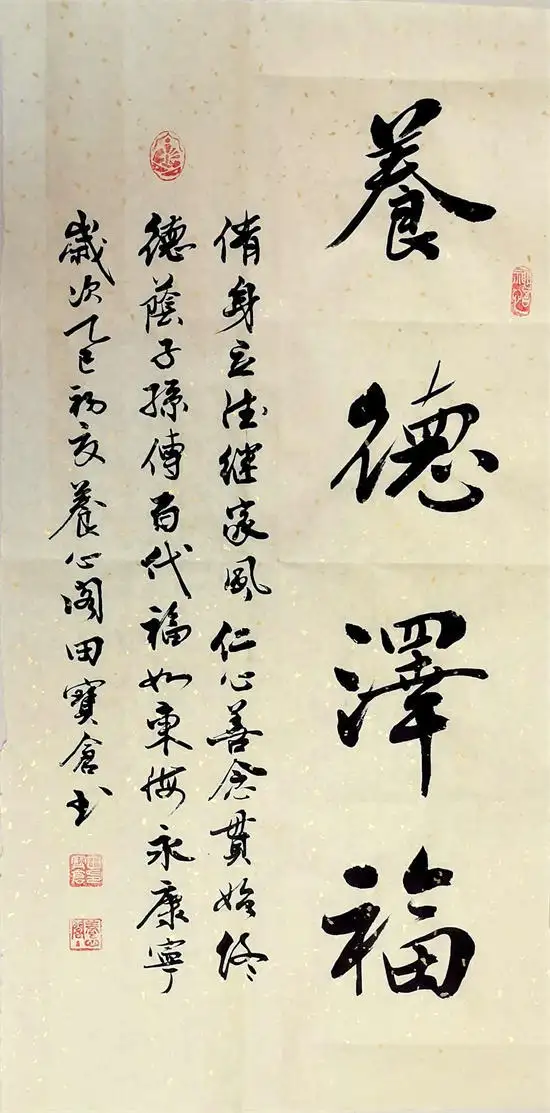 養德澤福
脩身立德继家風仁心善念貫始终
德蔭子孫傳百代福如東海永康寧
歲次乙巳初夏養心阁田寶倉书